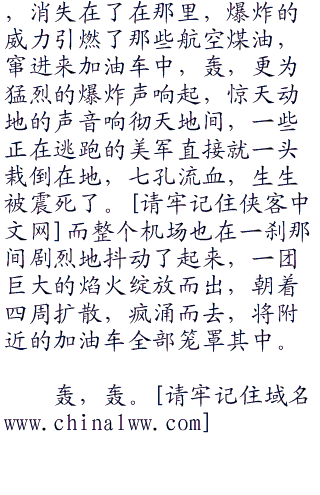 ，消失在了在那里，爆炸的
威力引燃了那些航空煤油，
窜进来加油车中，轰，更为
猛烈的爆炸声响起，惊天动
地的声音响彻天地间，一些
正在逃跑的美军直接就一头
栽倒在地，七孔流血，生生
被震死了。[请牢记住侠客中
文网]而整个机场也在一刹那
间剧烈地抖动了起来，一团
巨大的焰火绽放而出，朝着
四周扩散，疯涌而去，将附
近的加油车全部笼罩其中。
轰，轰。[请牢记住域名
www.china1ww.com]